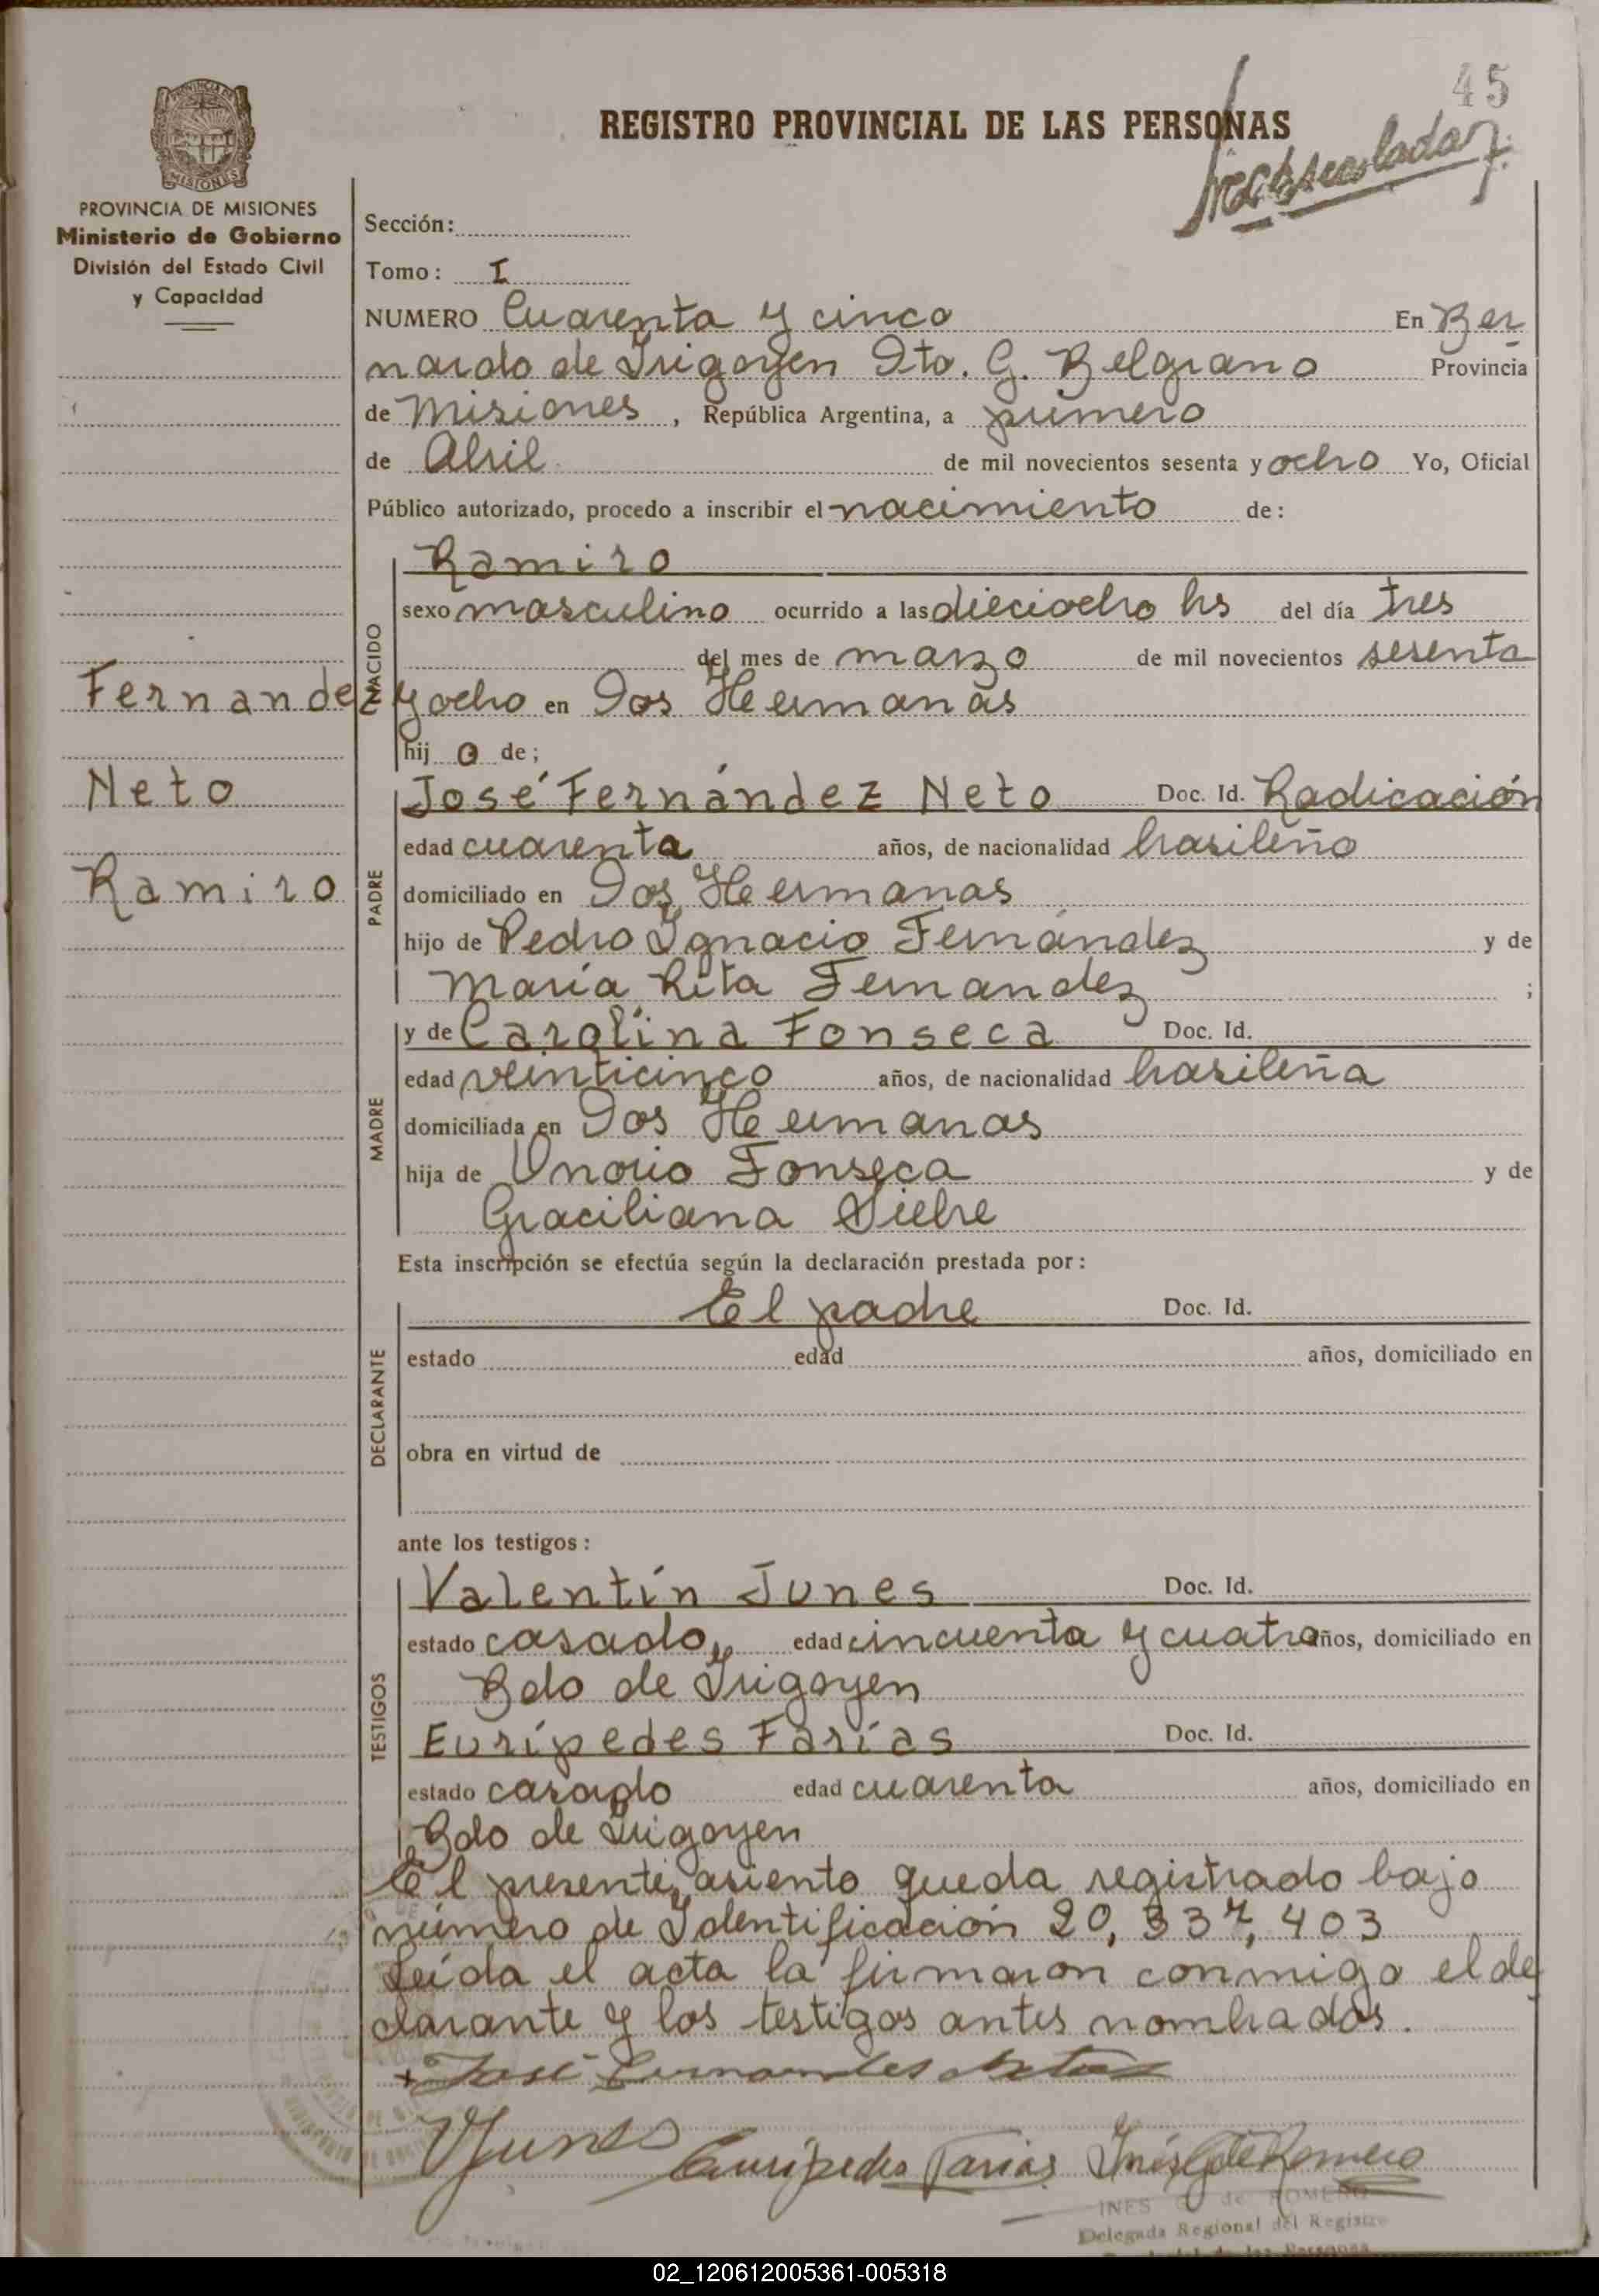 45
REGISTRO PROVINCIAL DE LAS PERSONAS
PROVINCIA DE MISIONES
Ministerio de Gobierno
División del Estado Civil
y Capacidad
Sección:
Tomo: I
NUMERO Cuarenta y cinco En Ber
nardo de Irigoyen Dto. G. Belgrano Provincia
de Misiones, República Argentina, a primero
de Abril de mil novecientos sesenta y ocho Yo, Oficial
Público autorizado, procedo a inscribir el nacimiento de:
NACIDO
Ramiro
sexo masculino ocurrido a las dieciocho hs del día tres
del mes de marzo de mil novecientos sesenta
Fernandez
y ocho en Dos Hermanas
hijo de;
Neto
PADRE
José Fernández Neto Doc. Id. Radicación
edad cuarenta años, de nacionalidad brasileño
Ramiro
domiciliado en Dos Hermanas
hijo de Pedro Ignacio Fernández y de
María Rita Fernandez ;
MADRE
y de Carolina Fonseca Doc. Id.
edad veinticinco años, de nacionalidad brasileña
domiciliada en Dos Hermanas
hija de Onorio Fonseca y de
Graciliana
Esta inscripción se efectúa según la declaración prestada por:
DECLARANTE
El padre Doc. Id.
estado edad años, domiciliado en
obra en virtud de
ante los testigos:
TESTIGOS
Valentín Junes Doc. Id.
estado casado, edad cincuenta y cuatro años, domiciliado en
Bdo de Irigoyen
Eurípedes Farías Doc. Id.
estado casado edad cuarenta años, domiciliado en
Bdo de Irigoyen
El presente asiento queda registrado bajo
número de Identificación 20,337,403
Leída el acta la firmaron conmigo el de
clarante y los testigos antes nombrados.
José Fernandes Neto
VJunes Eurípedes Farias Inés G de Romero
INES G de ROMERO
Delegada Regional del Registro
02_120612005361-005318